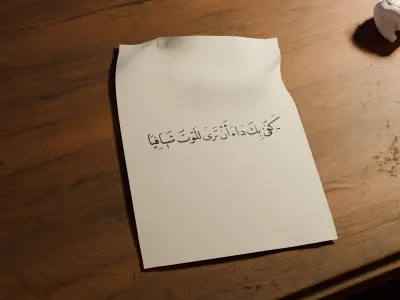 كَفَىٰ بِكَ دَاءً أَنْ تَرَىٰ المَوْتَ شَافِيًا